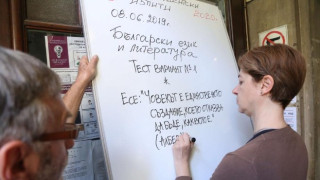 изпити
08.06.2019г.
Български език
и литература
Тест вариант №1
Есе: "Човекът е единственото
създание, което отказва
да бъде, каквото е."
(Албер